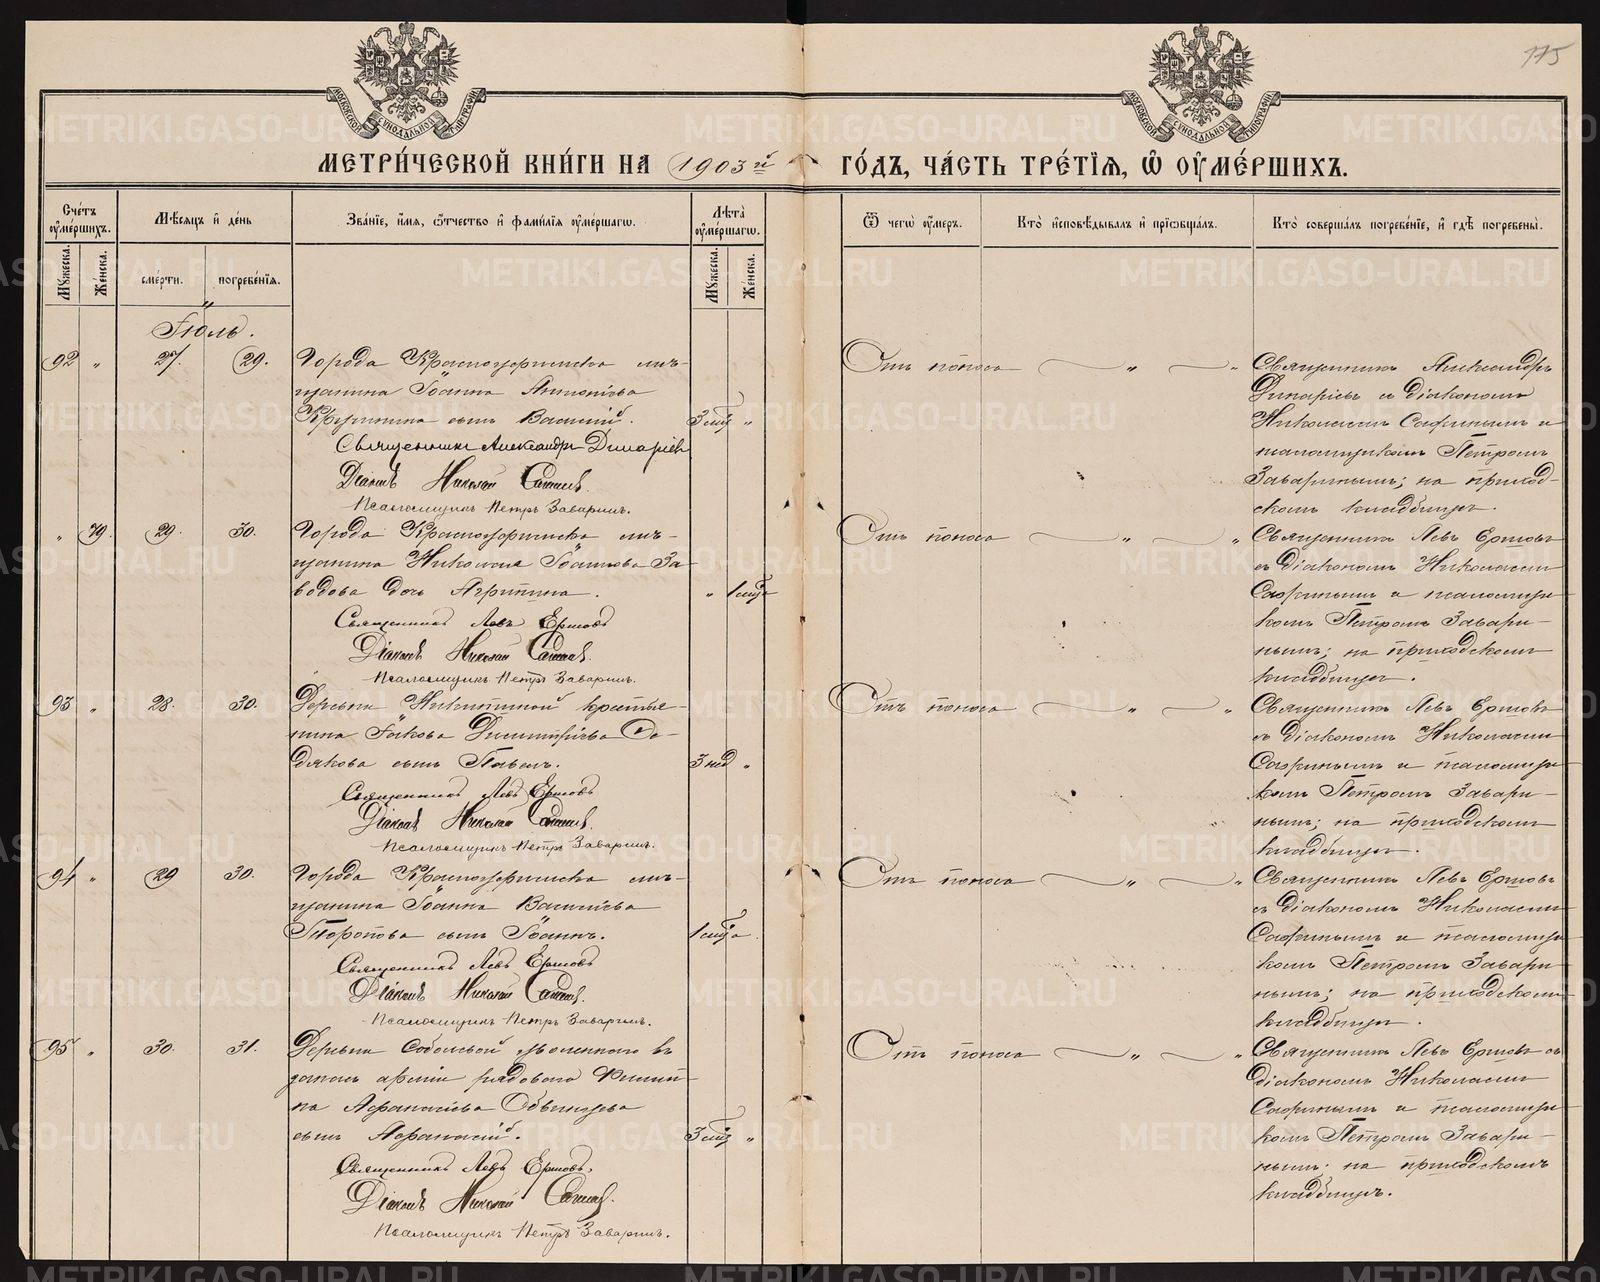 175
МОСКОВСКОЙ СѴНОДАЛЬНОЙ ТИПОГРАФІИ
МОСКОВСКОЙ СѴНОДАЛЬНОЙ ТИПОГРАФІИ
МЕТРИ́ЧЕСКОЙ КНИ́ГИ НА 1903й ГО́ДЪ, ЧА́СТЬ ТРЕ́ТІѦ, Ѡ ОУМЕ́РШИХЪ.
Сче́тъ оумершихъ.
Мѣсяцъ и де́нь
Зва́нїе, и́мя, ѻтчество и фами́лїя оумершагѡ.
Лѣта оумершагѡ.
Ѿ чегѡ оумеръ.
Кто исповѣдывалъ и прїѡбщалъ.
Кто совершалъ погребенїе, и гдѣ погребены.
Мужеска.
Женска.
смерти.
погребенїя.
Мужеска.
Женска.
Іюль.
92 " 27. 29. Города Красноуфимска мѣ-
щанина Іоанна Антонова
сынъ Василій. 3 мѣс "
Священникъ Александръ Динаріевъ
Діаконъ Николай
Псаломщикъ Петръ Заваринъ.
Отъ поноса " "
Священникъ Александръ
Динаріевъ съ діакономъ
Николаемъ и
псаломщикомъ Петромъ
Заваринымъ; на приход-
скомъ кладбищѣ.
" 79. 29. 30. Города Красноуфимска мѣ-
щанина Николая Іоаннова За-
водова дочь Агрипина. " 1 мѣс
Священникъ Левъ Ершовъ
Діаконъ Николай
Псаломщикъ Петръ Заваринъ.
Отъ поноса " "
Священникъ Левъ Ершовъ
съ діакономъ Николаемъ
и псаломщи-
комъ Петромъ Завари-
нымъ; на приходскомъ
кладбищѣ.
93 " 28. 30. Деревни Никитиной крестья-
нина Іакова Димитріева
сынъ Павелъ. 3 нед "
Священникъ Левъ Ершовъ
Діаконъ Николай
Псаломщикъ Петръ Заваринъ.
Отъ поноса " "
Священникъ Левъ Ершовъ
съ діакономъ Николаемъ
и псаломщи-
комъ Петромъ Завари-
нымъ; на приходскомъ
кладбищѣ.
94 " 29 30. Города Красноуфимска мѣ-
щанина Іоанна Васильева
Торопова сынъ Іоаннъ. 1 мѣс
Священникъ Левъ Ершовъ
Діаконъ Николай
Псаломщикъ Петръ Заваринъ.
Отъ поноса " "
Священникъ Левъ Ершовъ
съ діакономъ Николаемъ
и псаломщи-
комъ Петромъ Завари-
нымъ; на приходскомъ
кладбищѣ.
95 " 30. 31. Деревни уволеннаго въ
запасъ арміи рядового Филип-
па Афанасіева
сынъ Афанасій. 3 мѣс "
Священникъ Левъ Ершовъ,
Діаконъ Николай
Псаломщикъ Петръ Заваринъ.
Отъ поноса " "
Священникъ Левъ Ершовъ съ
діакономъ Николаемъ
и псаломщи-
комъ Петромъ Завари-
нымъ; на приходскомъ
кладбищѣ.
METRIKI.GASO-URAL.RU